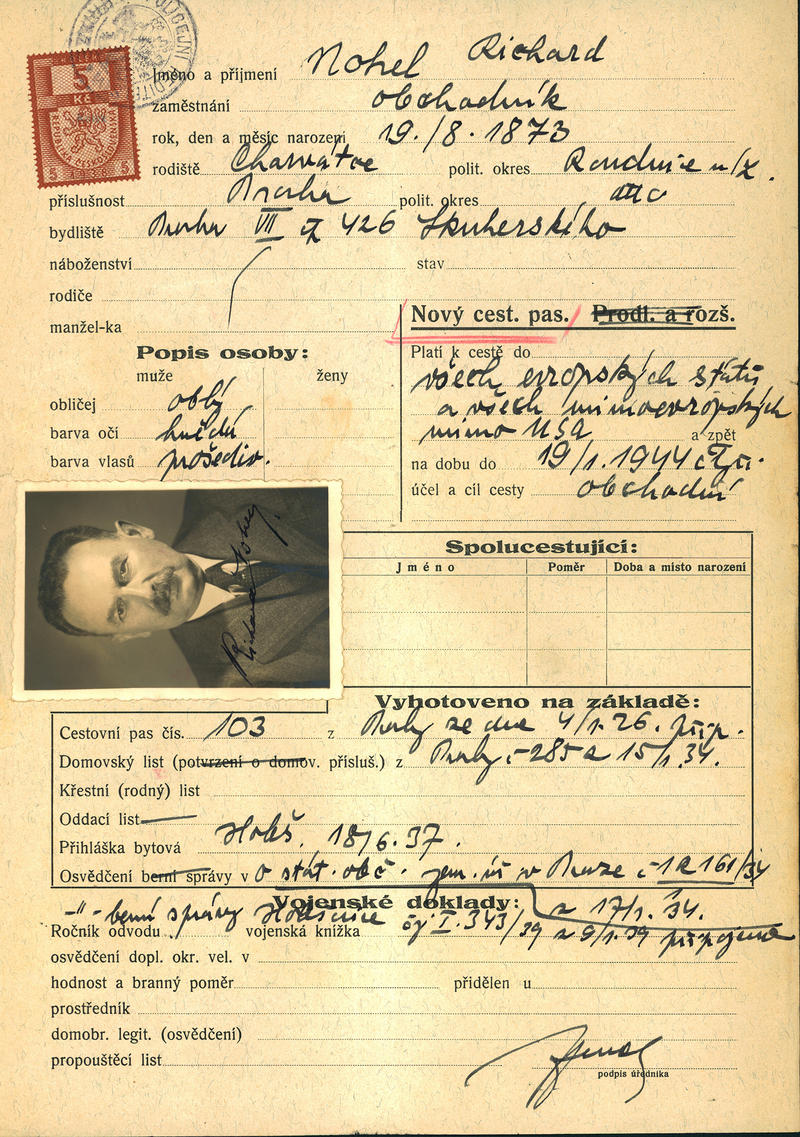 5
Kč
5 1938 5
Jméno a příjmení Nohel Richard
zaměstnání obchodník
rok, den a měsíc narození 19./8.1873
rodiště Charvátce polit. okres Roudnice n/L.
příslušnost Praha polit. okres dtto
bydliště Praha VII čp 426 Skuherského
náboženství stav
rodiče
manžel-ka
Nový cest. pas. Prodl. a rozš.
Popis osoby:
muže ženy
obličej oblý
barva očí hnědá
barva vlasů prošediv.
Platí k cestě do
všech evropských států
a všech mimoevropských
mimo USA a zpět
na dobu do 19/1.1944
účel a cíl cesty obchodní
Richard Nohel
Spolucestující:
Jméno Poměr Doba a místo narození
Vyhotoveno na základě:
Cestovní pas čís. 103 z Prahy ze dne 4/1.26. přip.
Domovský list (potvrzení o domov. přísluš.) z Prahy č 285 a 15/1.34.
Křestní (rodný) list
Oddací list
Přihláška bytová Holeš. 18/6.37.
Osvědčení berní správy v o stát. obč. zem. úř v Praze č 1R 161/34
z 17/1.34.
Vojenské doklady:
-"- berní správy Holešovice čj I.343/39 z 9/1.39 připojeno
Ročník odvodu vojenská knížka
osvědčení dopl. okr. vel. v
hodnost a branný poměr přidělen u
prostředník
domobr. legit. (osvědčení)
propouštěcí list
podpis úředníka